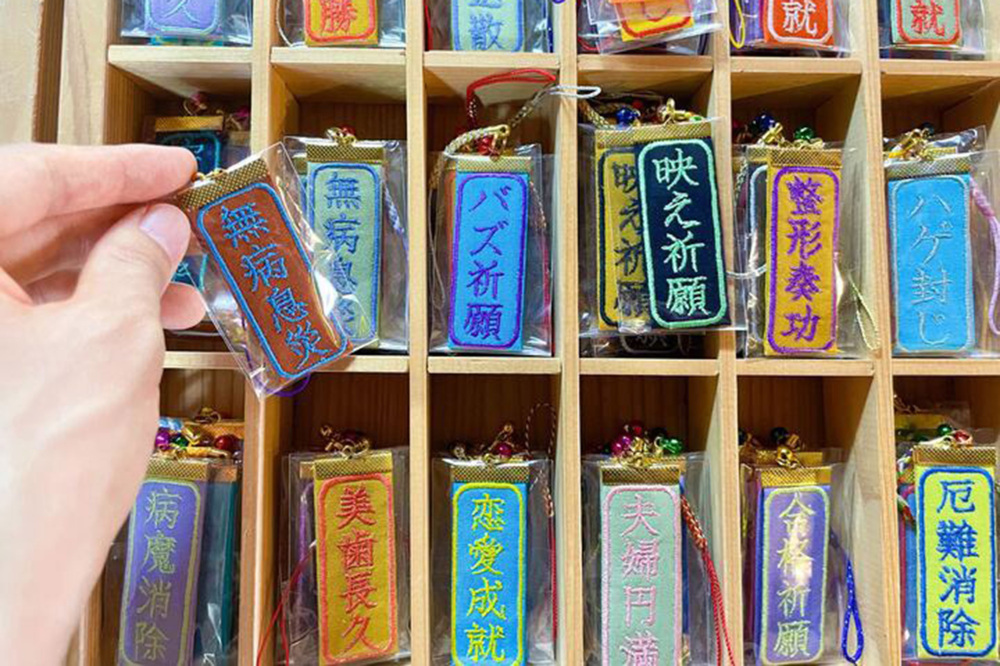 勝
散
就
就
無病息災
無病息災
バズ祈願
映え祈願
映え祈願
整形奏功
ハゲ封じ
病魔消除
美歯長久
恋愛成就
夫婦円満
合格祈願
厄難消除